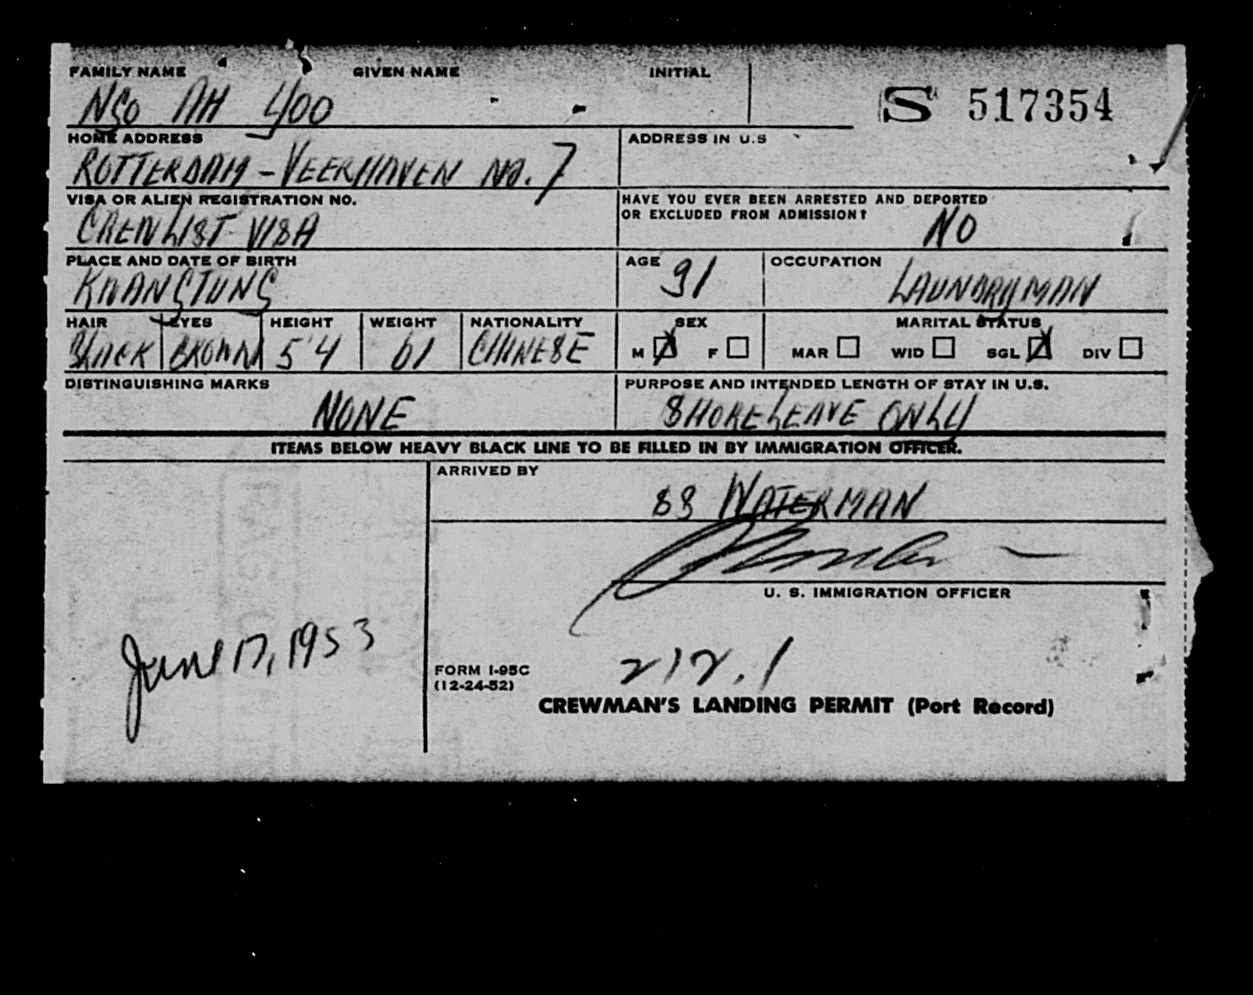 FAMILY NAME GIVEN NAME INITIAL
NGO AH YOO
S 517354
HOME ADDRESS
ROTTERDAM - VEERHAVEN NO. 7
ADDRESS IN U.S
VISA OR ALIEN REGISTRATION NO.
CREWLIST-VISA
HAVE YOU EVER BEEN ARRESTED AND DEPORTED
OR EXCLUDED FROM ADMISSION?
NO
PLACE AND DATE OF BIRTH
KWANGTUNG
AGE
OCCUPATION
LAUNDRYMAN
HAIR EYES HEIGHT WEIGHT NATIONALITY
BLACK BROWN 5'4 61 CHINESE
SEX
M F
MARITAL STATUS
MAR WID SGL DIV
DISTINGUISHING MARKS
NONE
PURPOSE AND INTENDED LENGTH OF STAY IN U.S.
SHORELEAVE ONLY
ITEMS BELOW HEAVY BLACK LINE TO BE FILLED IN BY IMMIGRATION OFFICER.
ARRIVED BY
SS WATERMAN
U. S. IMMIGRATION OFFICER
June 17, 1953
FORM I-95C
(12-24-52)
212.1
CREWMAN'S LANDING PERMIT (Port Record)